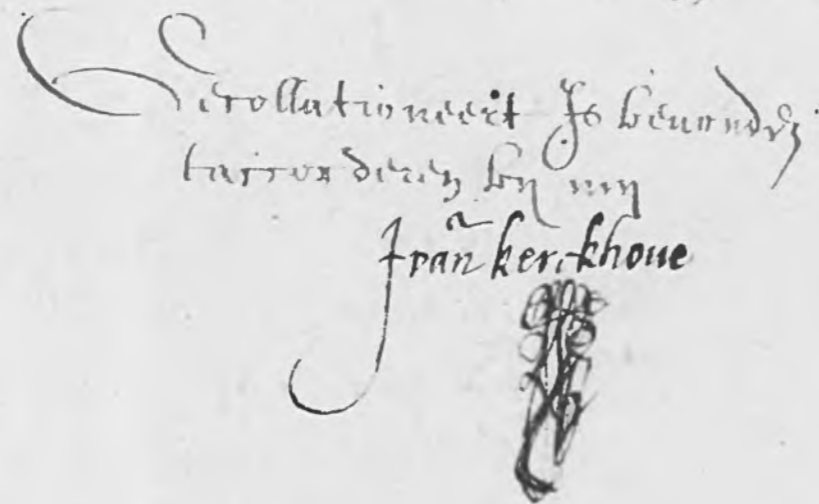 Gecollationeert Is bevonden
taccorderen by my
fran̄ kerckhoue